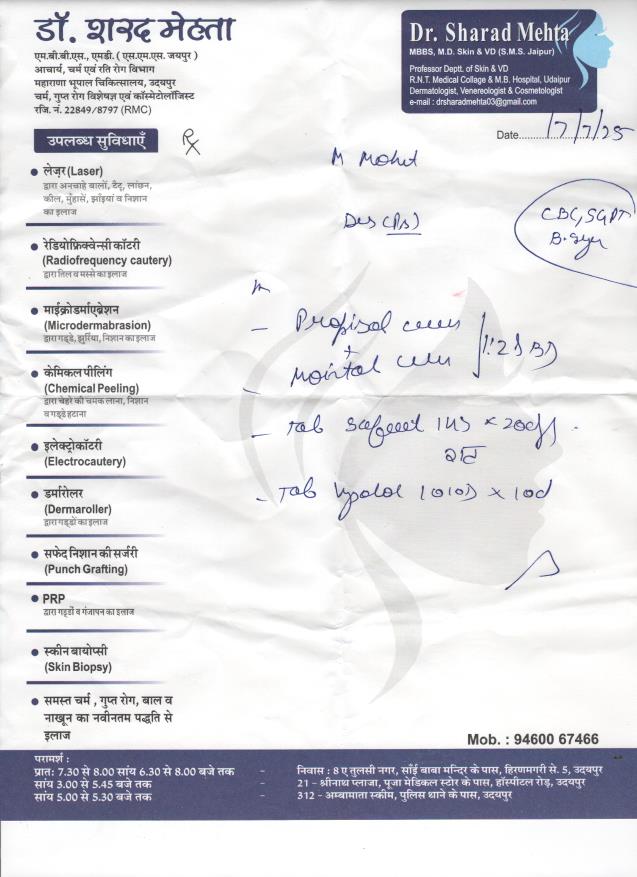 डॉ. शरद मेहता
एम.बी.बी.एस., एमडी. ( एस.एम.एस. जयपुर )
आचार्य, चर्म एवं रति रोग विभाग
महाराणा भूपाल चिकित्सालय, उदयपुर
चर्म, गुप्त रोग विशेषज्ञ एवं कॉस्मेटोलॉजिस्ट
रजि. नं. 22849/8797 (RMC)
Dr. Sharad Mehta
MBBS, M.D. Skin & VD (S.M.S. Jaipur)
Professor Deptt. of Skin & VD
R.N.T. Medical Collage & M.B. Hospital, Udaipur
Dermatologist, Venereologist & Cosmetologist
e-mail : drsharadmehta03@gmail.com
Date............ 17/7/25
उपलब्ध सुविधाएँ
Rx
M Mohit
CBC, SGPT
लेज़र (Laser)
द्वारा अनचाहे बालों, टैटू, लांछन,
कील, मुंहासें, झाँइयां व निशान
का इलाज
रेडियोफ्रिक्वेन्सी कॉटरी
(Radiofrequency cautery)
द्वारा तिल व मस्से का इलाज
माईक्रोडर्माएब्रेशन
(Microdermabrasion)
द्वारा गड्डे, झुर्रिया, निशान का इलाज
केमिकल पीलिंग
(Chemical Peeling)
द्वारा चेहरे की चमक लाना, निशान
व गड्डे हटाना
इलेक्ट्रोकॉटरी
(Electrocautery)
डर्मारोलर
(Dermaroller)
द्वारा गड्डों का इलाज
सफेद निशान की सर्जरी
(Punch Grafting)
PRP
द्वारा गड्डों व गंजापन का इलाज
स्कीन बायोप्सी
(Skin Biopsy)
समस्त चर्म , गुप्त रोग, बाल व
नाखून का नवीनतम पद्धति से
इलाज
+
- Tab
- Tab x 10d
Mob. : 94600 67466
परामर्श :
प्रातः 7.30 से 8.00 सांय 6.30 से 8.00 बजे तक - निवास : 8 ए तुलसी नगर, साँई बाबा मन्दिर के पास, हिरणमगरी से. 5, उदयपुर
सांय 3.00 से 5.45 बजे तक - 21 – श्रीनाथ प्लाजा, पूजा मेडिकल स्टोर के पास, हॉस्पीटल रोड़, उदयपुर
सांय 5.00 से 5.30 बजे तक - 312 – अम्बामाता स्कीम, पुलिस थाने के पास, उदयपुर